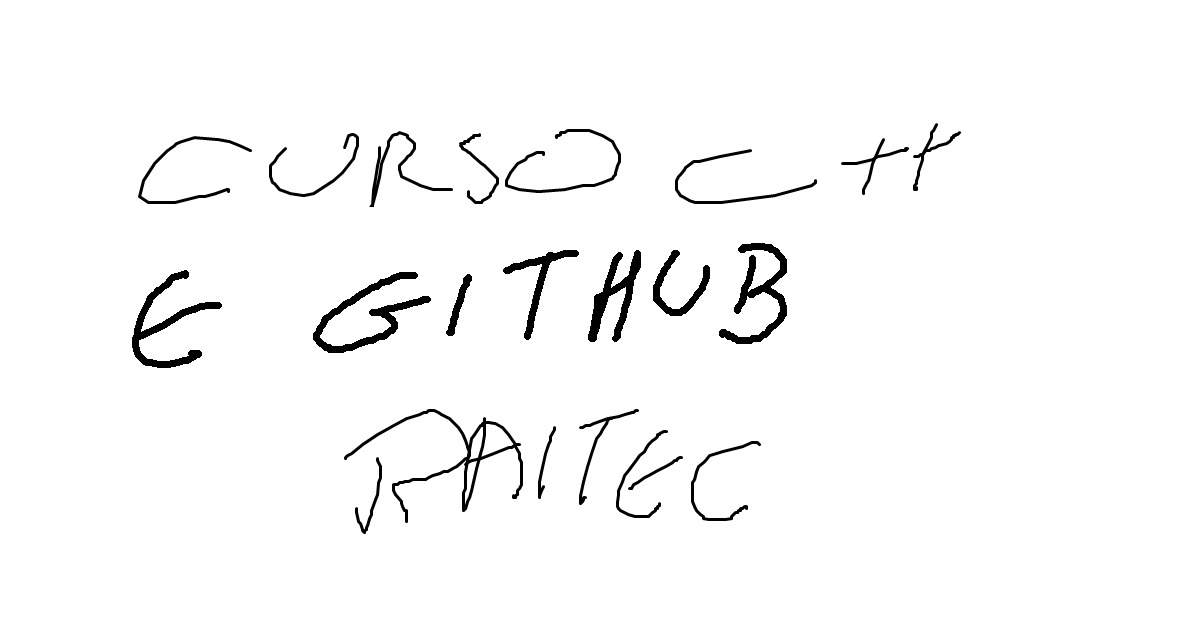 CURSO C++
E GITHUB
RAITEC